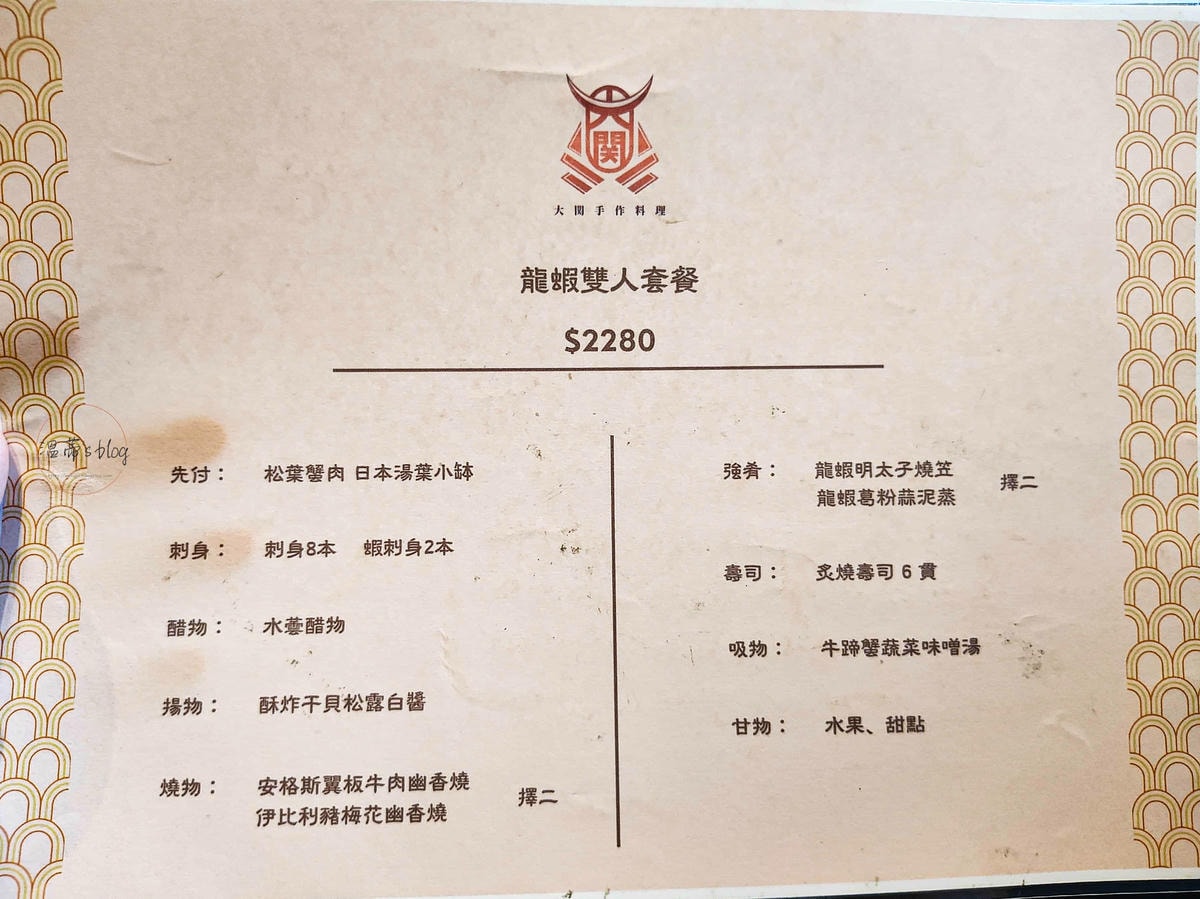 大関
大関手作料理
龍蝦雙人套餐
$2280
先付： 松葉蟹肉 日本湯葉小缽
刺身： 刺身8本 蝦刺身2本
醋物： 水雲醋物
揚物： 酥炸干貝松露白醬
燒物： 安格斯翼板牛肉幽香燒
伊比利豬梅花幽香燒
擇二
強肴： 龍蝦明太子燒笠
龍蝦葛粉蒜泥蒸
擇二
壽司： 炙燒壽司 6 貫
吸物： 牛蹄蟹蔬菜味噌湯
甘物： 水果、甜點
溫蒂's blog